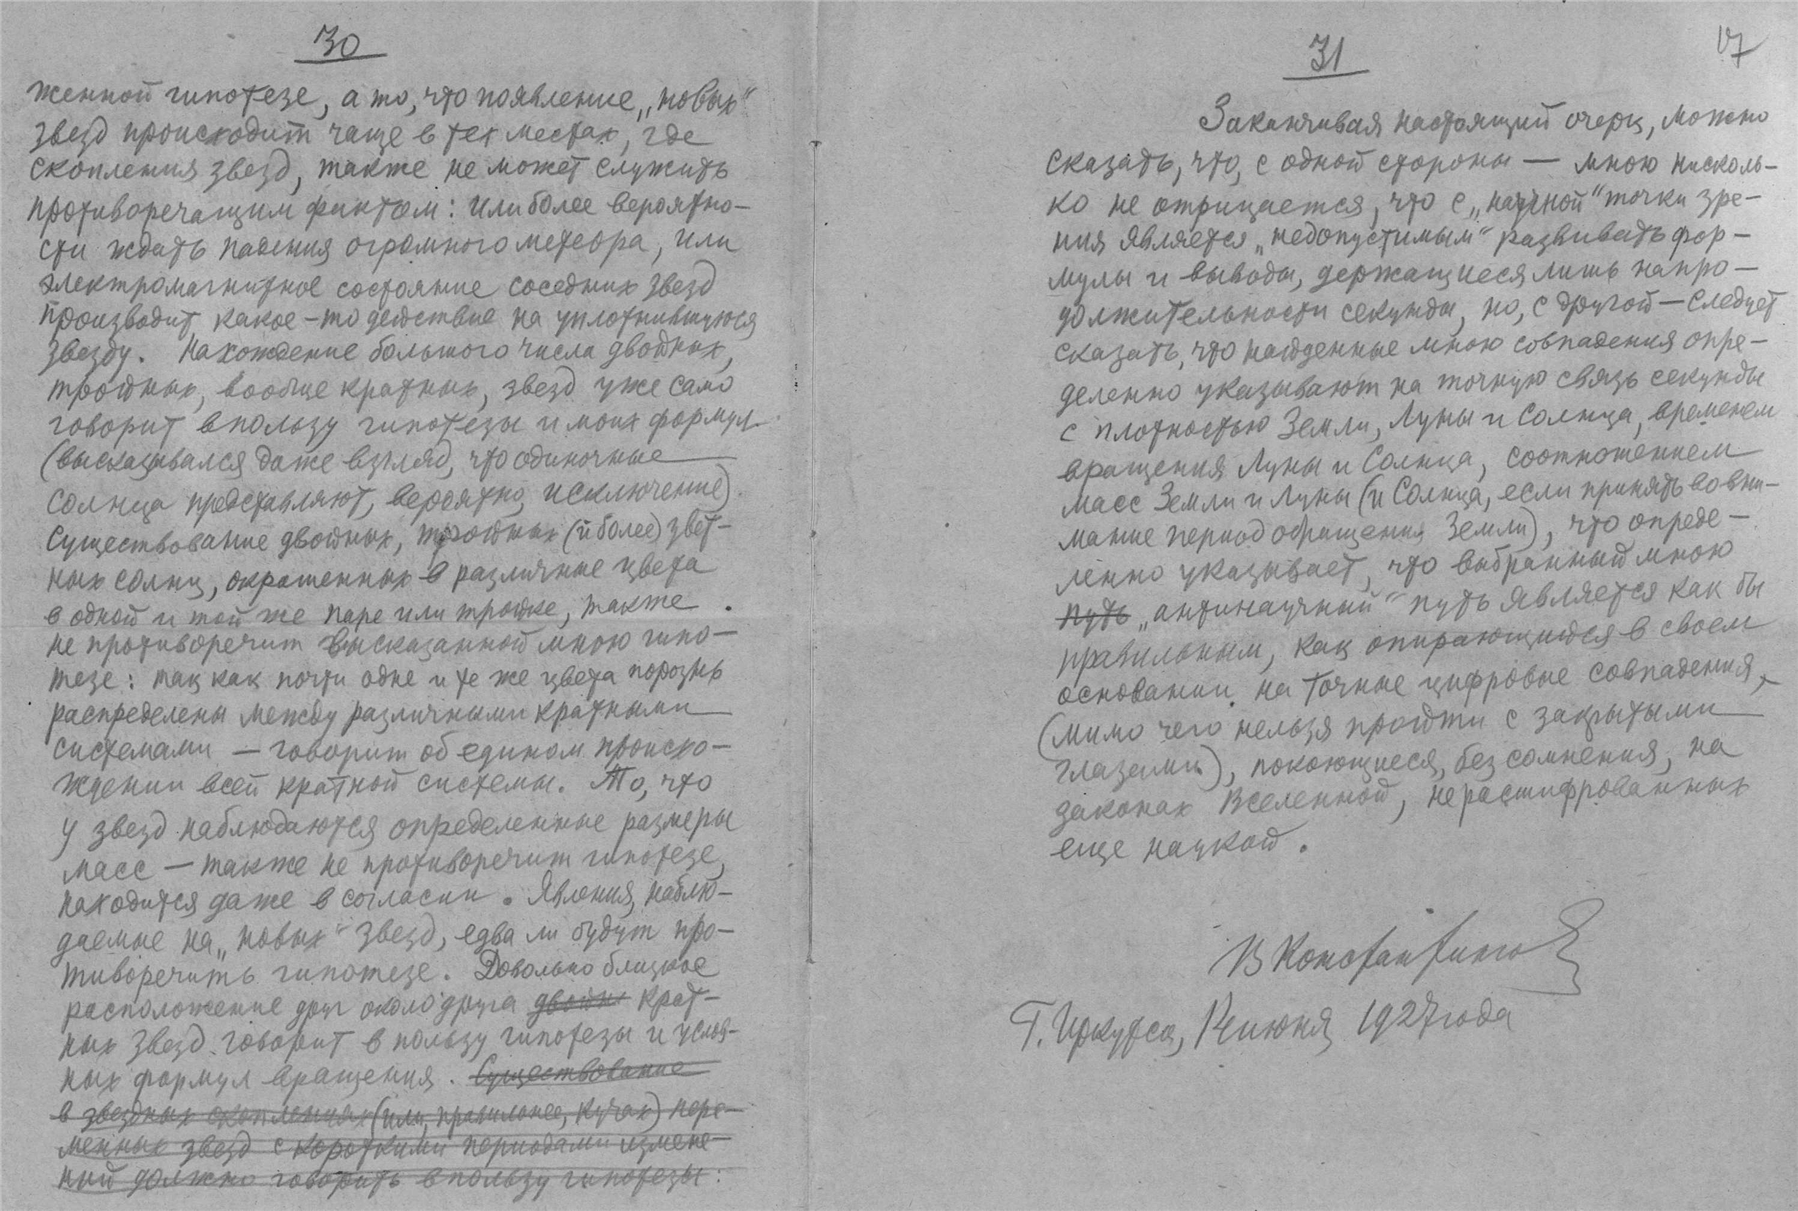 30
женной гипотезе, а то, что появление „новых“
звезд происходит чаще в тех местах, где
скопления звезд, также не может служить
противоречащим фактом: или более вероятно-
сти ждать падения огромного метеора, или
электромагнитное состояние соседних звезд
производит какое-то действие на уплотнившуюся
звезду. Нахождение большого числа двойных,
тройных, вообще кратных, звезд уже само
говорит в пользу гипотезы и моих формул
(высказывался даже взгляд, что одиночные
солнца представляют, вероятно, исключение).
Существование двойных, тройных (и более) цвет-
ных солнц, окрашенных в различные цвета
в одной и той же паре или тройке, также
не противоречит высказанной мною гипо-
тезе: так как почти одне и те же цвета порознь
распределены между различными кратными
системами — говорит об едином происхо-
ждении всей кратной системы. То, что
у звезд наблюдаются определенные размеры
масс — также не противоречит гипотезе,
находится даже в согласии. Явления, наблю-
даемые на „новых“ звезд, едва ли будут про-
тиворечить гипотезе. Довольно близкое
расположение друг около друга двойн крат-
ных звезд говорит в пользу гипотезы и услов-
ных формул вращения. Существование
в звездных скоплениях (или, правильнее, кучах) пере-
менных звезд с короткими периодами измене-
ний должно говорить в пользу гипотезы:
31
17
Заканчивая настоящий очерк, можно
сказать, что, с одной стороны — мною насколь-
ко не отрицается, что с „научной“ точки зре-
ния является „недопустимым“ развивать фор-
мулы и выводы, держащиеся лишь на про-
должительности секунды, но, с другой — следует
сказать, что найденные мною совпадения опре-
деленно указывают на точную связь секунды
с плотностью Земли, Луны и Солнца, временем
вращения Луны и Солнца, соотношением
масс Земли и Луны (и Солнца, если принять во вни-
мание период обращения Земли), что опреде-
ленно указывает, что выбранный мною
путь „антинаучный“ путь является как бы
правильным, как опирающийся в своем
основании на точные цифровые совпадения,
(мимо чего нельзя пройти с закрытыми
глазами), покоющиеся, без сомнения, на
законах Вселенной, нерасшифрованных
еще наукой.
В Константинов
Г. Иркутск, июня 1927 года